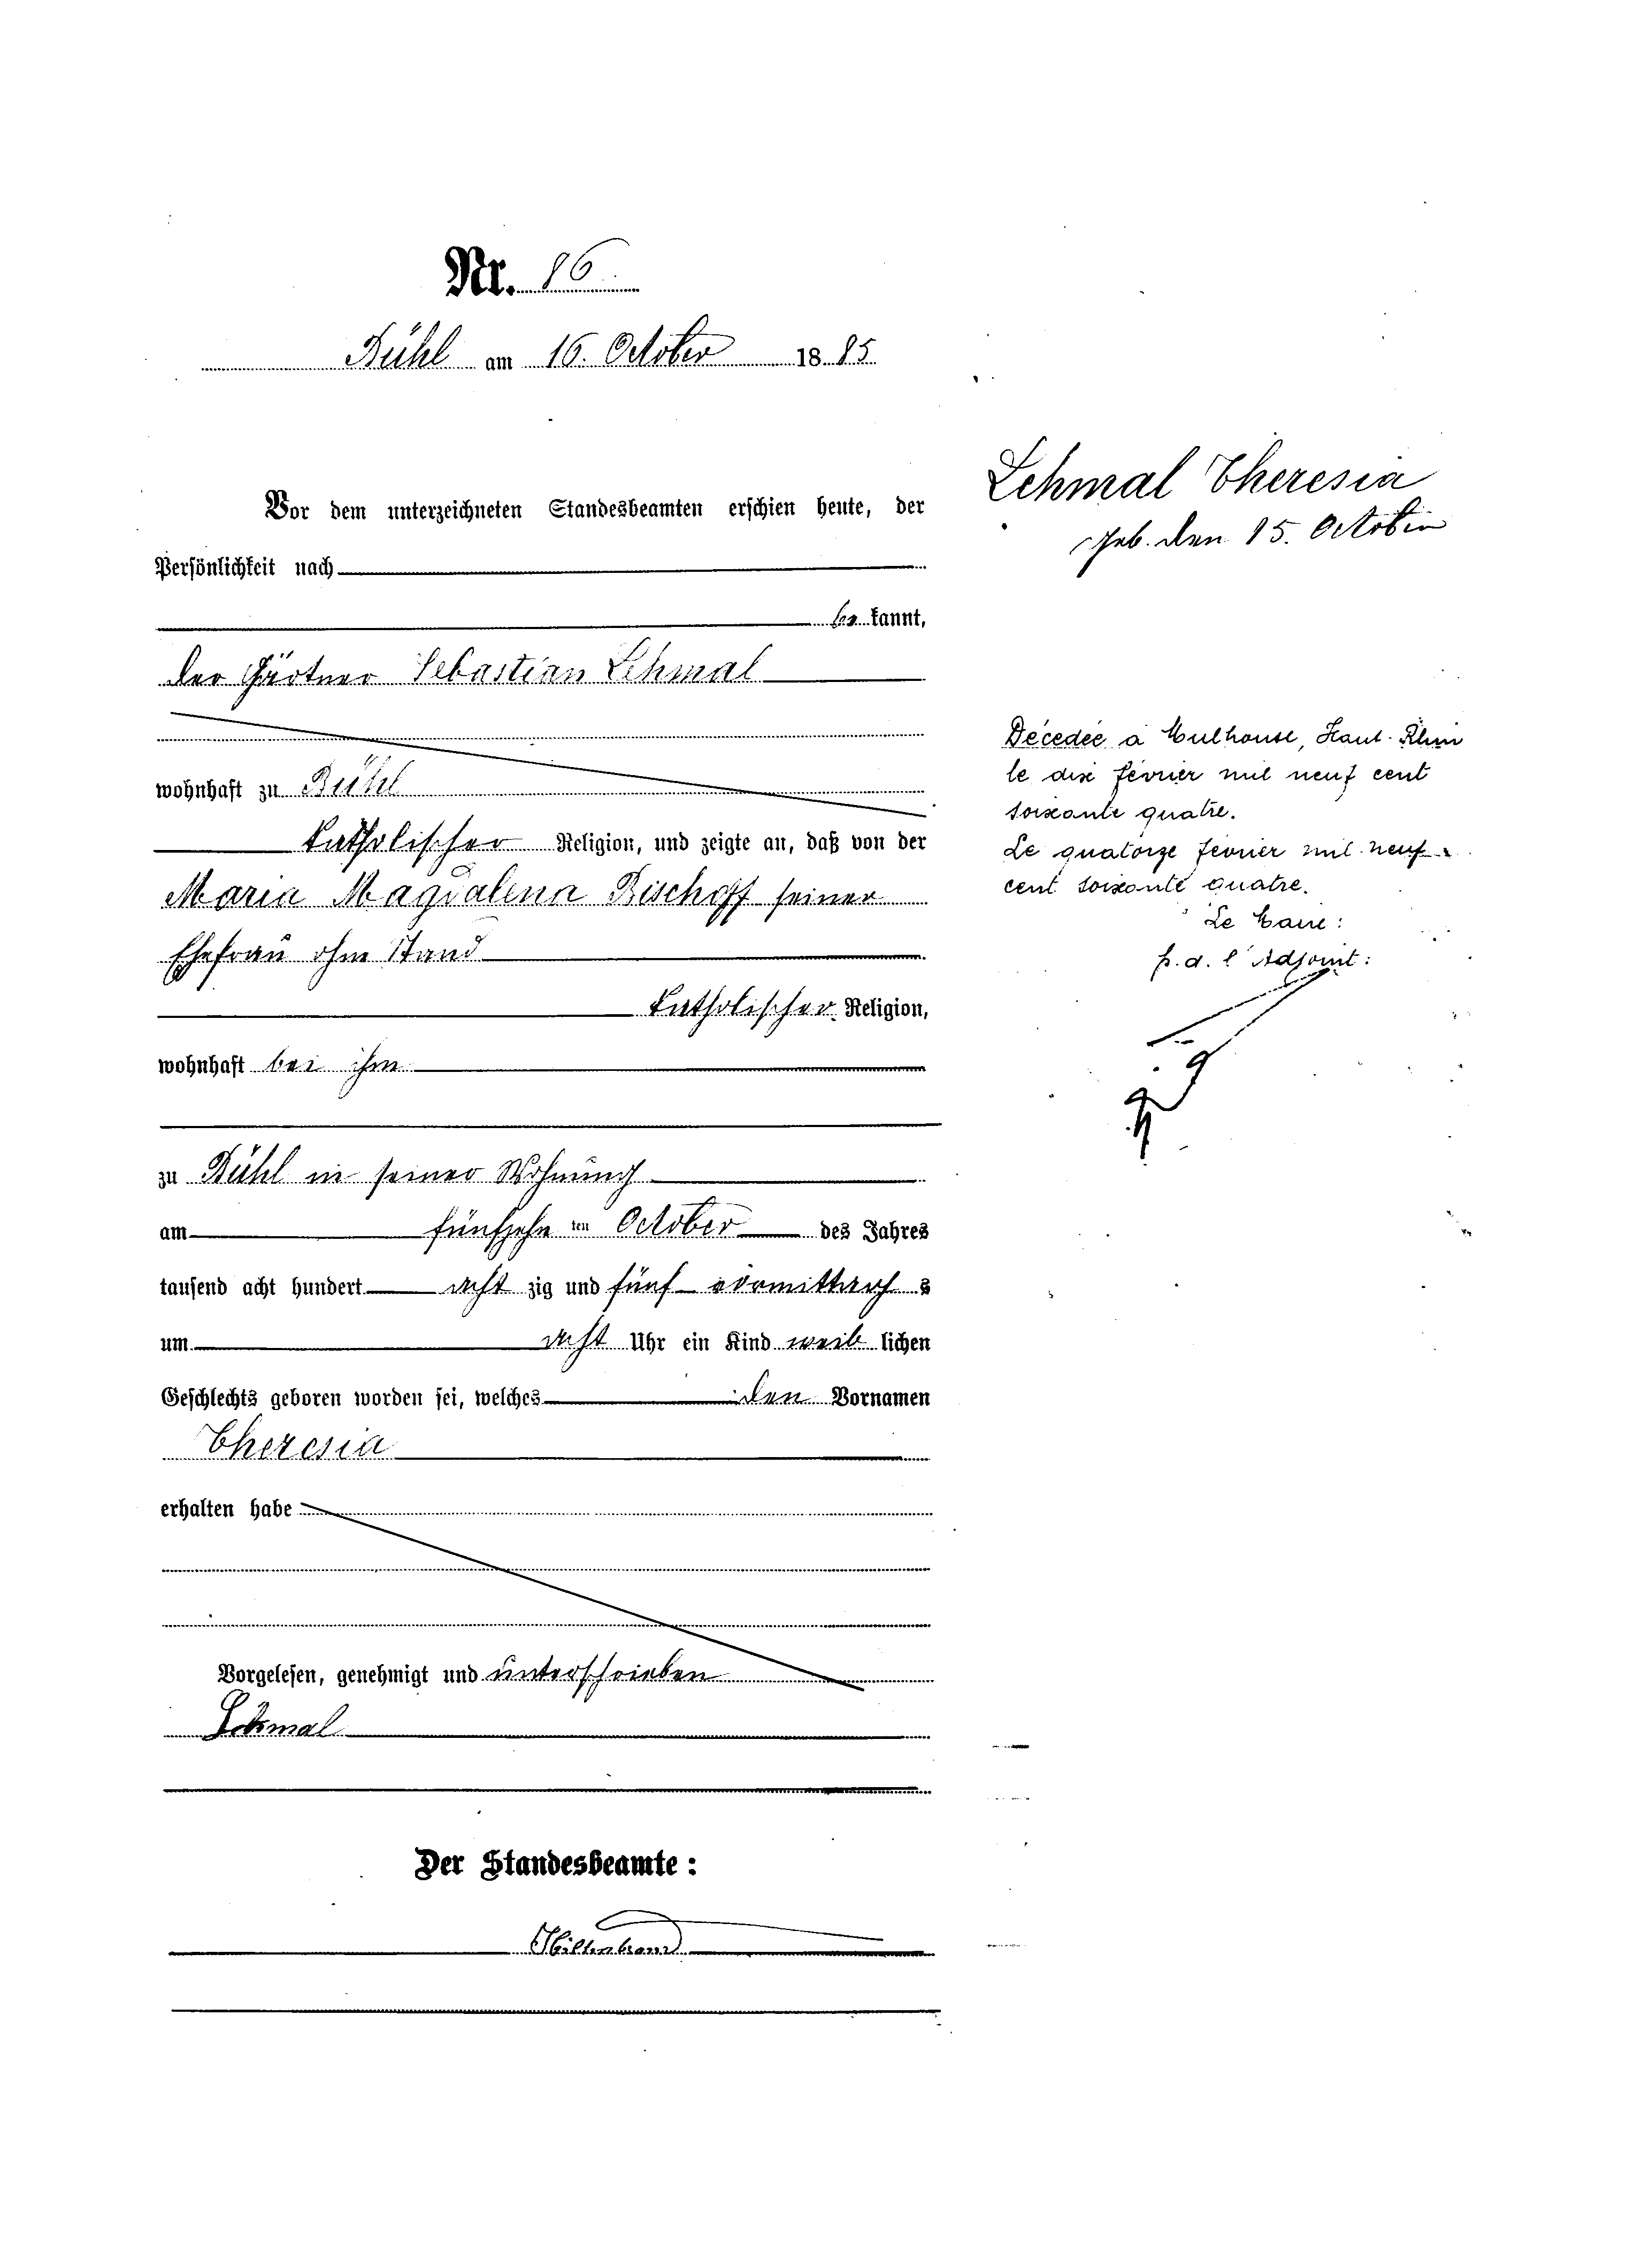 Nr. 86
Bühl am 16. October 1885
Vor dem unterzeichneten Standesbeamten erschien heute, der
Persönlichkeit nach
be kannt,
der Gärtner Sebastian Lehmal
wohnhaft zu Bühl
katholischer Religion, und zeigte an, daß von der
Maria Magdalena Bischoff seiner
Ehefrau ohne Stand
katholischer Religion,
wohnhaft bei ihm
zu Bühl in seiner Wohnung
am fünfzehn ten October des Jahres
tausend acht hundert acht zig und fünf vormittag s
um acht Uhr ein Kind weib lichen
Geschlechts geboren worden sei, welches den Vornamen
Theresia
erhalten habe
Vorgelesen, genehmigt und unterschrieben
Lehmal
Der Standesbeamte:
Hiltenbrand
Lehmal Theresia
geb. den 15. October
Décédée à Mulhouse, Haut-Rhin
le dix février mil neuf cent
soixante quatre.
Le quatorze février mil neuf
cent soixante quatre.
Le Maire:
p.d. l'Adjoint: